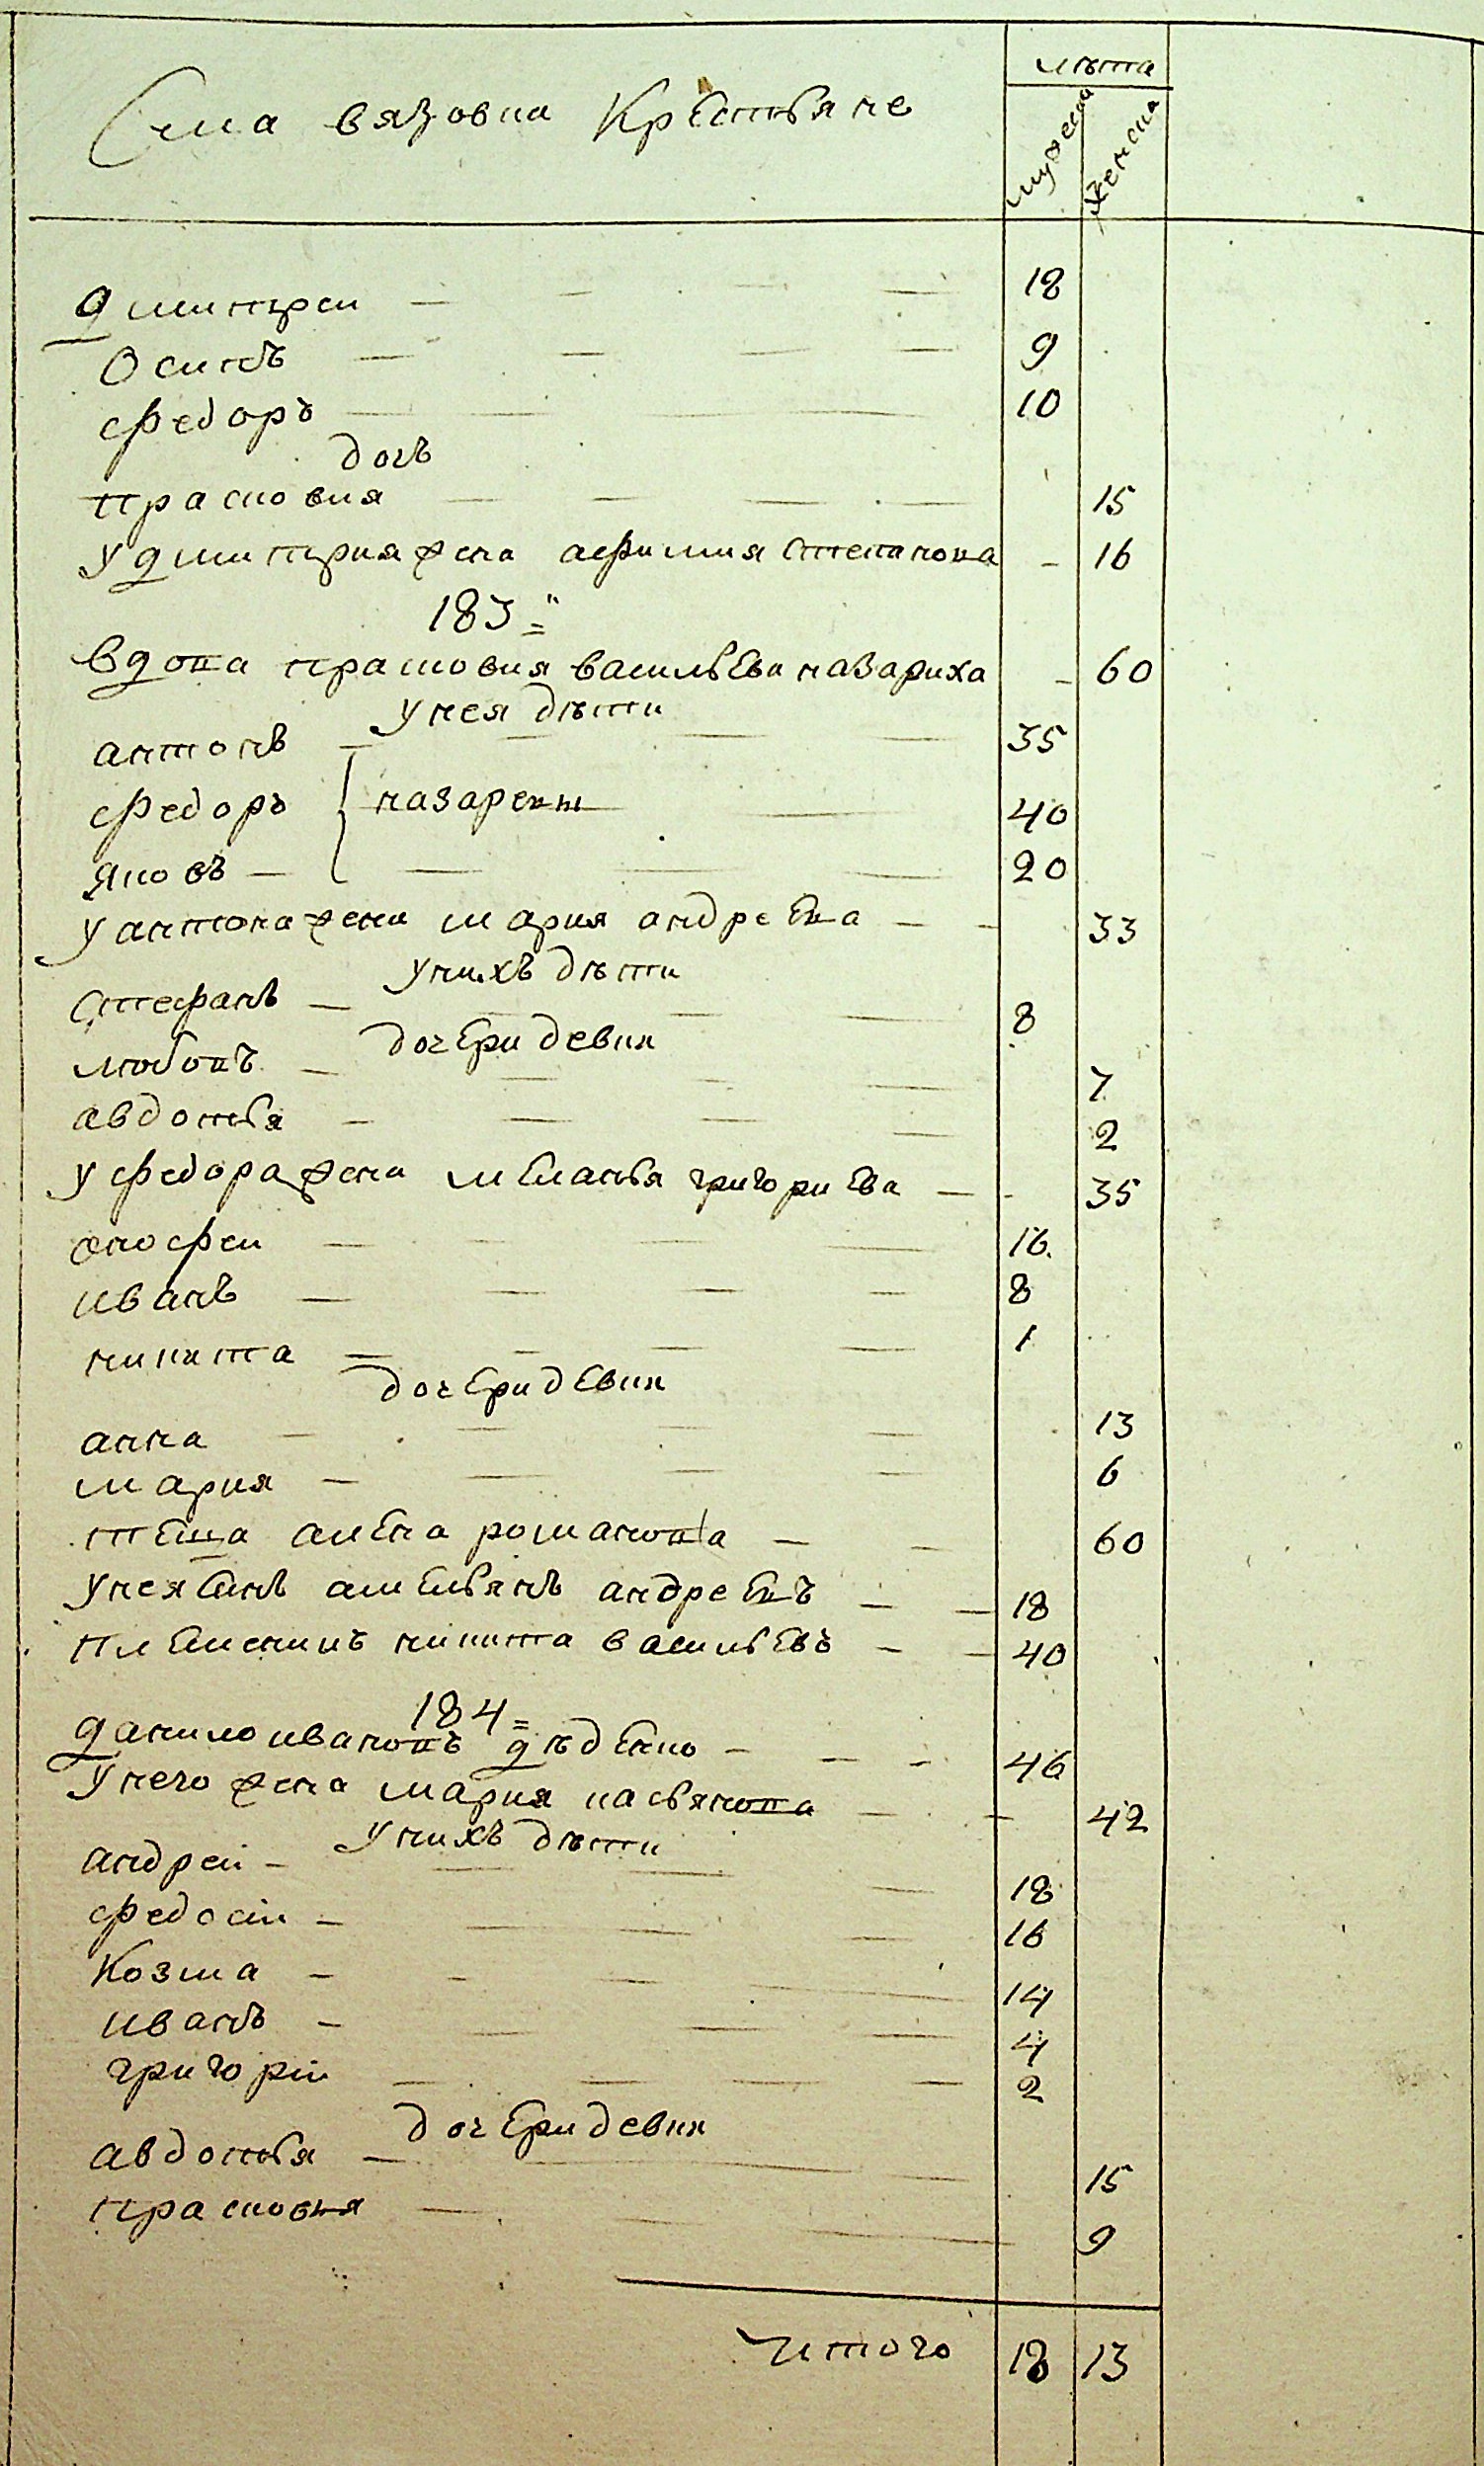 лѣта
Села вязовки Крестьяне
мужеска
женска
дмитреи 18
Осипъ 9
федоръ 10
дочь
прасковия 15
у дмитрия жена афимия степанова 16
183
вдова прасковия васильева назариха 60
у нея дѣти
антонъ 35
федоръ назаревы 40
яковъ 20
у антона жена мария андреева 33
у нихъ дѣти
стефанъ 8
дочери девки
любовь 7
авдотья 2
у федора жена меланья григориева 35
16
иванъ 8
никита 1
дочери девки
анна 13
мария 6
теща алена романова 60
у нея сынъ амельянъ андреевъ 18
племеникъ никита васильевъ 40
184
данило ивановъ дѣденко 46
у него жена мария касьянова 42
у нихъ дѣти
андреи 18
федосiи 16
Козма 14
иванъ 4
григорiи 2
дочери девки
авдотья 15
прасковья 9
итого 18 13